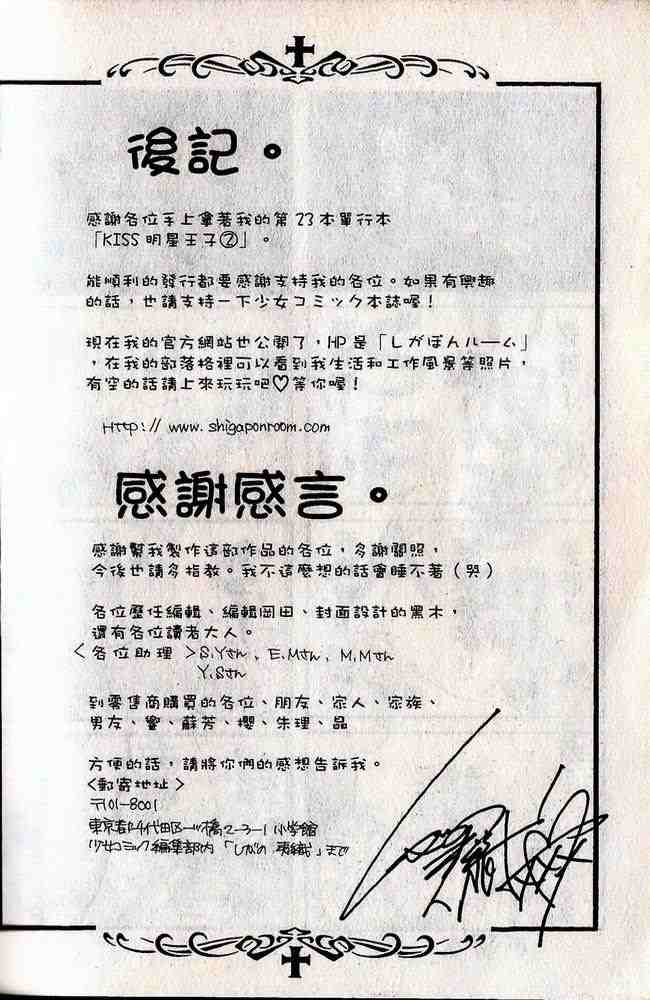 後記。
感謝各位手上拿著我的第23本單行本
「KISS明星王子②」。
能順利的發行都要感謝支持我的各位。如果有興趣
的話,也請支持一下少女コミック本誌喔!
現在我的官方網站也公開了,HP是「しがぽんルーム」
,在我的部落格裡可以看到我生活和工作風景等照片,
有空的話請上來玩玩吧♡等你喔!
Http://www.shigaponroom.com
感謝感言。
感謝幫我製作這部作品的各位,多謝關照,
今後也請多指教。我不這麼想的話會睡不著(哭)
各位歷任編輯、編輯岡田、封面設計的黑木,
還有各位讀者大人。
<各位助理>S.Yさん、E.Mさん、M.Mさん
Y.Sさん
到零售商購買的各位、朋友、家人、家族、
男友、蜜、蘇芳、櫻、朱理、晶
方便的話,請將你們的感想告訴我。
<郵寄地址>
〒101-8001
東京都千代田区一ツ橋2-3-1 小学館
少女コミック編集部内「しがの夷織」まで